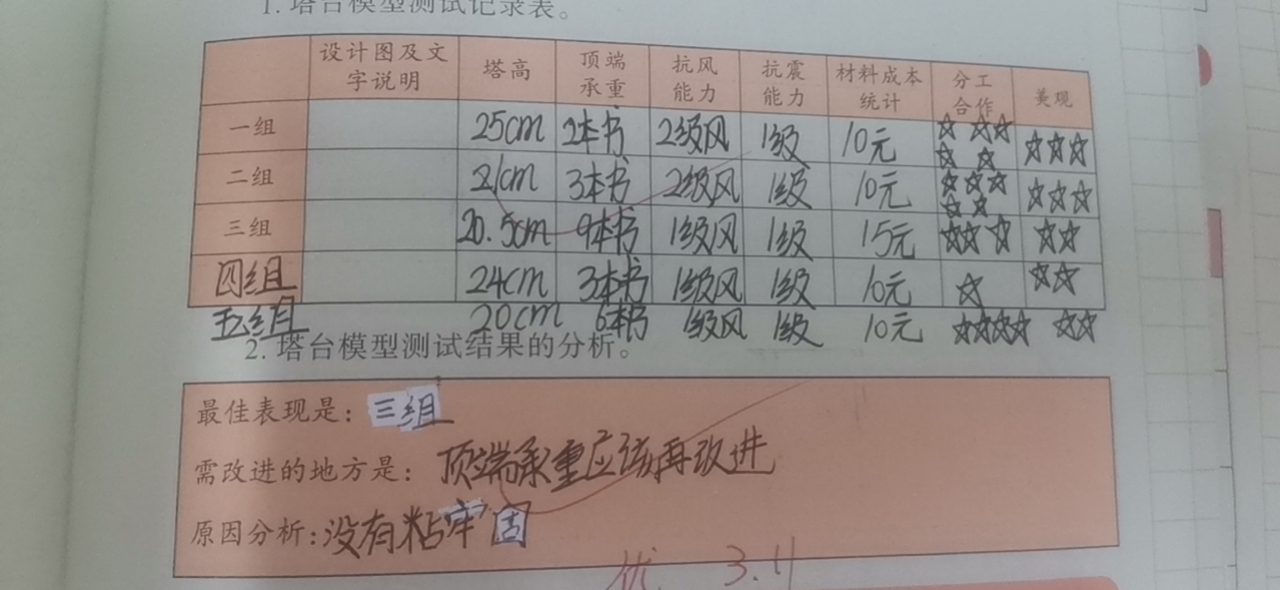 1. 塔台模型测试记录表。
设计图及文字说明 塔高 顶端承重 抗风能力 抗震能力 材料成本统计 分工合作 美观
一组 25cm 2本书 2级风 1级 10元 ☆☆☆☆☆ ☆☆☆
二组 21cm 3本书 2级风 1级 10元 ☆☆☆☆☆ ☆☆☆
三组 20.5cm 9本书 1级风 1级 15元 ☆☆☆ ☆☆
四组 24cm 3本书 1级风 1级 10元 ☆ ☆☆
五组 20cm 6本书 1级风 1级 10元 ☆☆☆☆ ☆☆
2. 塔台模型测试结果的分析。
最佳表现是：三组
需改进的地方是：顶端承重应该再改进
原因分析：没有粘牢固
优 3.11